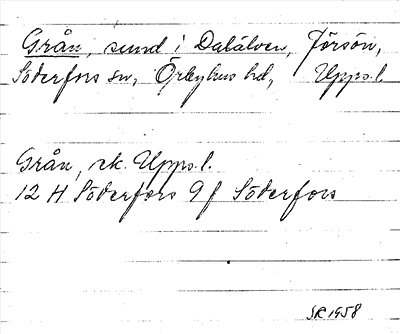 Grån, sund i Dalälven, Jörsön,
Söderfors sn, Örbyhus hd, Upps.l.
Grån, ek. Upps.l.
12 H Söderfors 9 f Söderfors
SR 1958